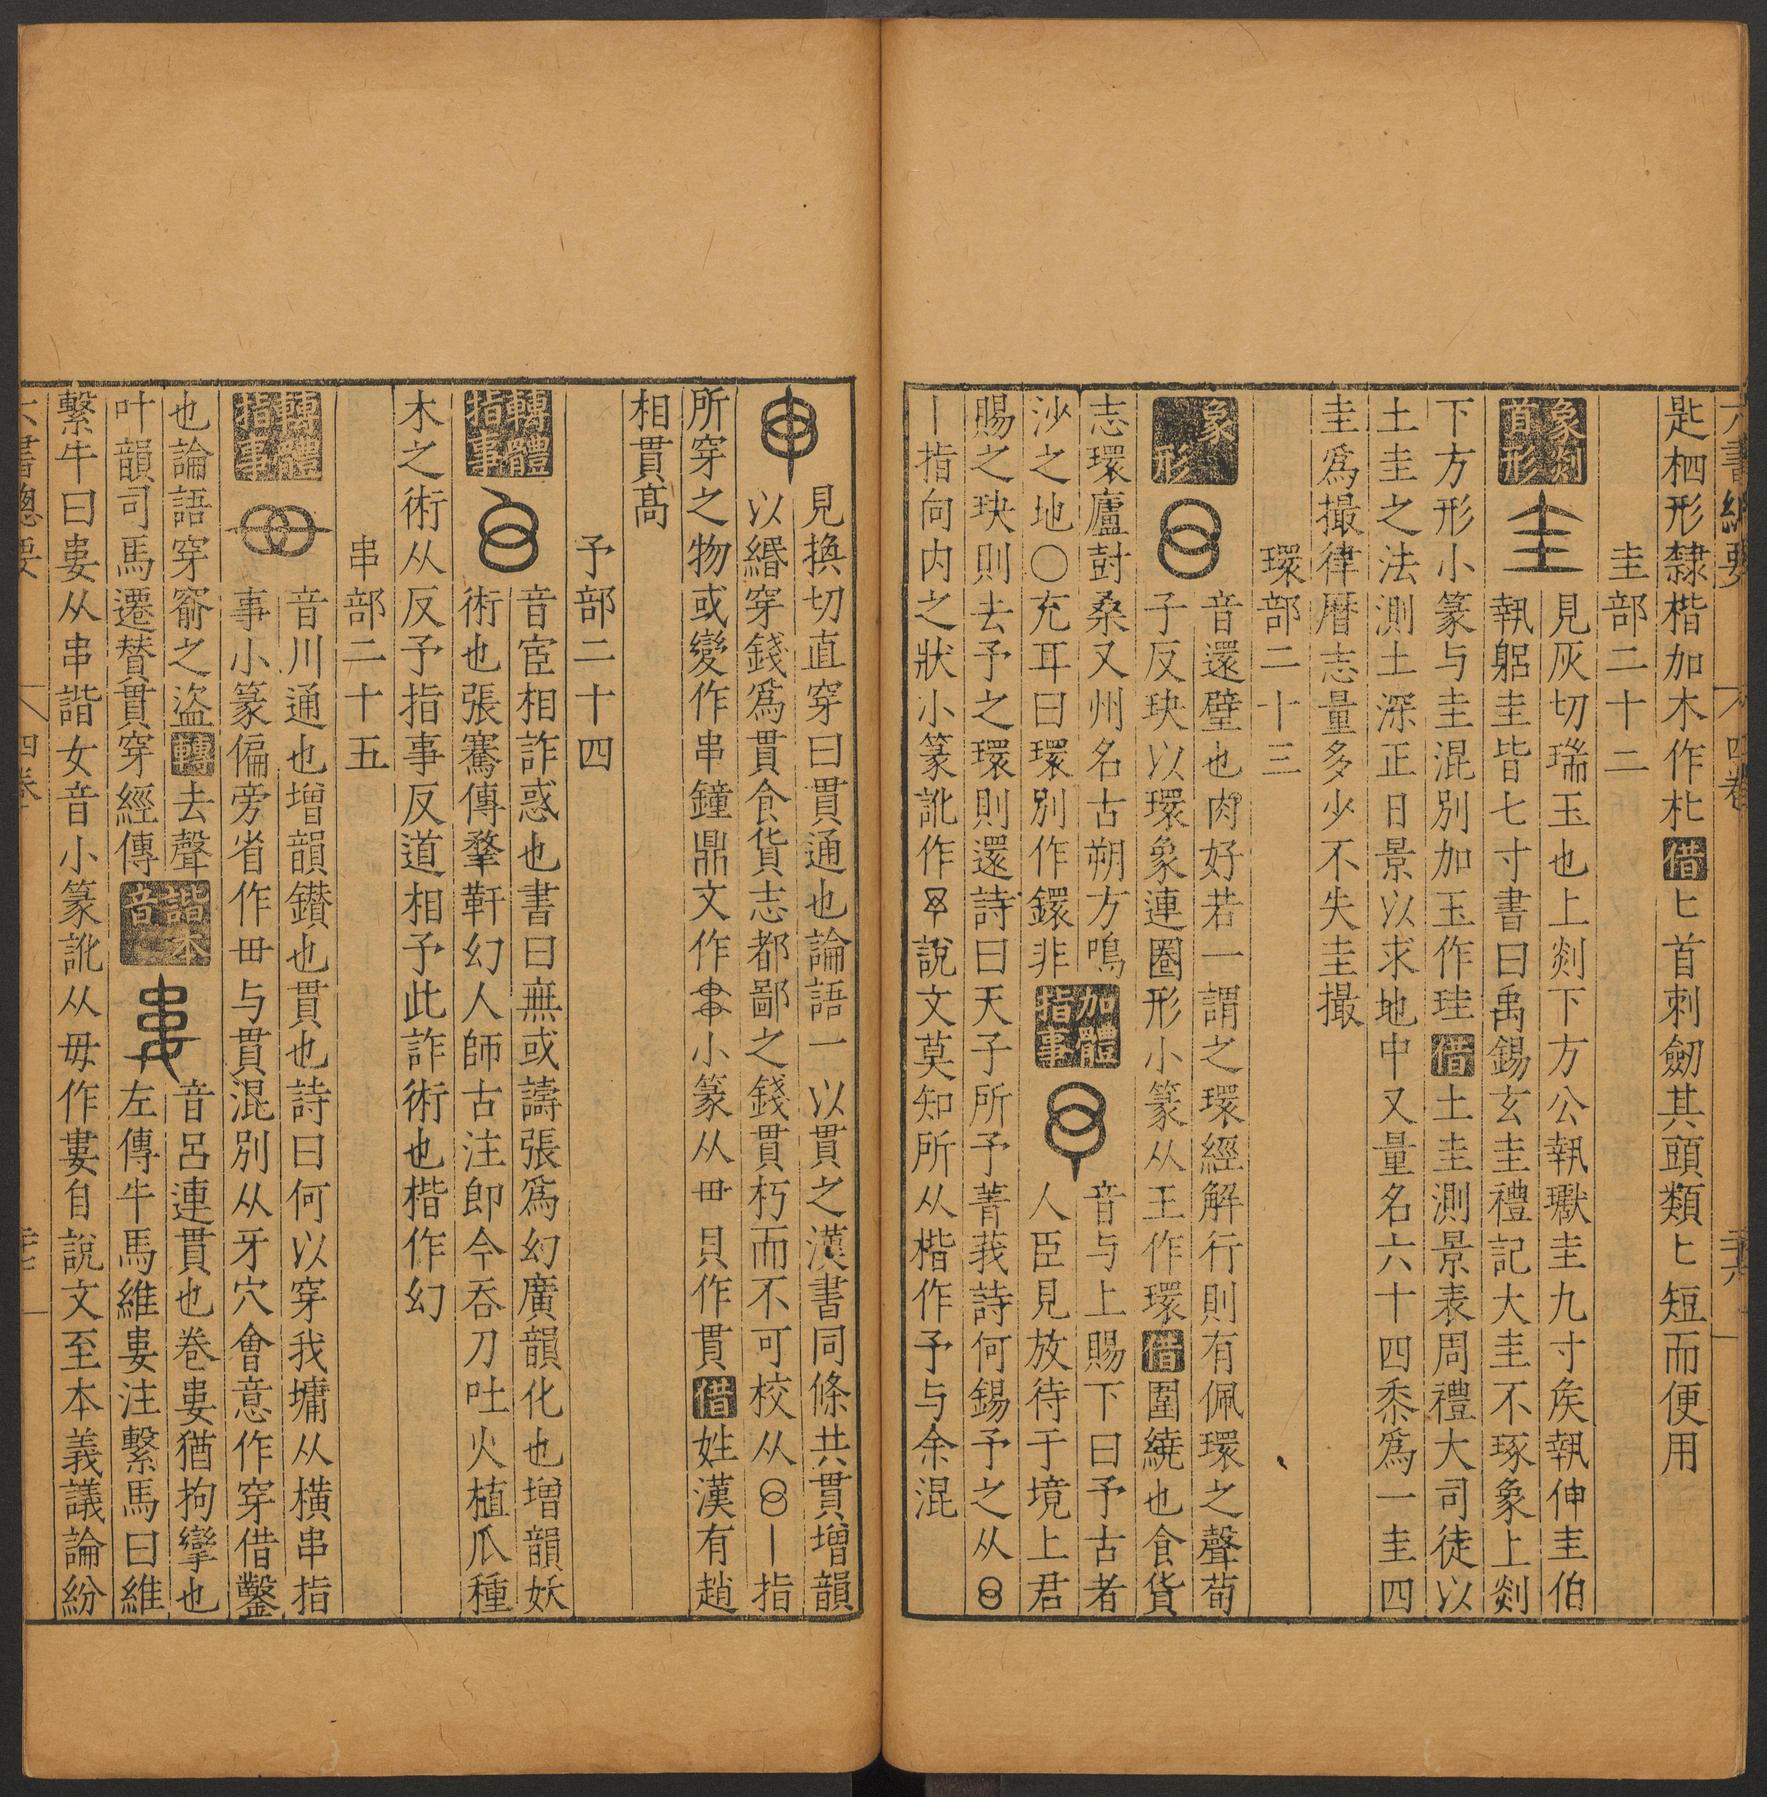 六書總要 四卷
匙柶形隸楷加木作朼借匕首刺劒其頭類匕短而便用
圭部二十二
象剡首形 見灰切瑞玉也上剡下方公執瓛圭九寸矦執伸圭伯
執躬圭皆七寸書曰禹錫玄圭禮記大圭不琢象上剡
下方形小篆与圭混別加玉作珪借土圭測景表周禮大司徒以
土圭之法測土深正日景以求地中又量名六十四黍爲一圭四
圭爲撮律曆志量多少不失圭撮
環部二十三
象形 音還璧也肉好若一謂之環經解行則有佩環之聲荀
子反玦以環象連圈形小篆从王作環借圍繞也食貨
志環廬封桑又州名古朔方鳴
沙之地〇充耳曰環別作鐶非
加體指事 音与上賜下曰予古者
人臣見放待于境上君
賜之玦則去予之環則還詩曰天子所予菁莪詩何錫予之从
丨指向内之狀小篆訛作 說文莫知所从楷作予与余混
見換切直穿曰貫通也論語一以貫之漢書同條共貫增韻
以緡穿錢爲貫食貨志都鄙之錢貫朽而不可校从 丨指
所穿之物或變作串鐘鼎文作 小篆从毌貝作貫借姓漢有趙
相貫髙
予部二十四
轉體指事 音宦相詐惑也書曰無或譸張爲幻廣韻化也增韻妖
術也張騫傳犛靬幻人師古注即今吞刀吐火植瓜種
木之術从反予指事反道相予此詐術也楷作幻
串部二十五
轉體指事 音川通也增韻鑚也貫也詩曰何以穿我墉从橫串指
事小篆偏旁省作毌与貫混別从牙穴會意作穿借鑿
也論語穿窬之盜轉去聲
叶韻司馬遷賛貫穿經傳
諧本音 音呂連貫也巻婁猶拘攣也
左傳牛馬維婁注繫馬曰維
繫牛曰婁从串諧女音小篆訛从毋作婁自說文至本義議論紛
六書總要 四卷